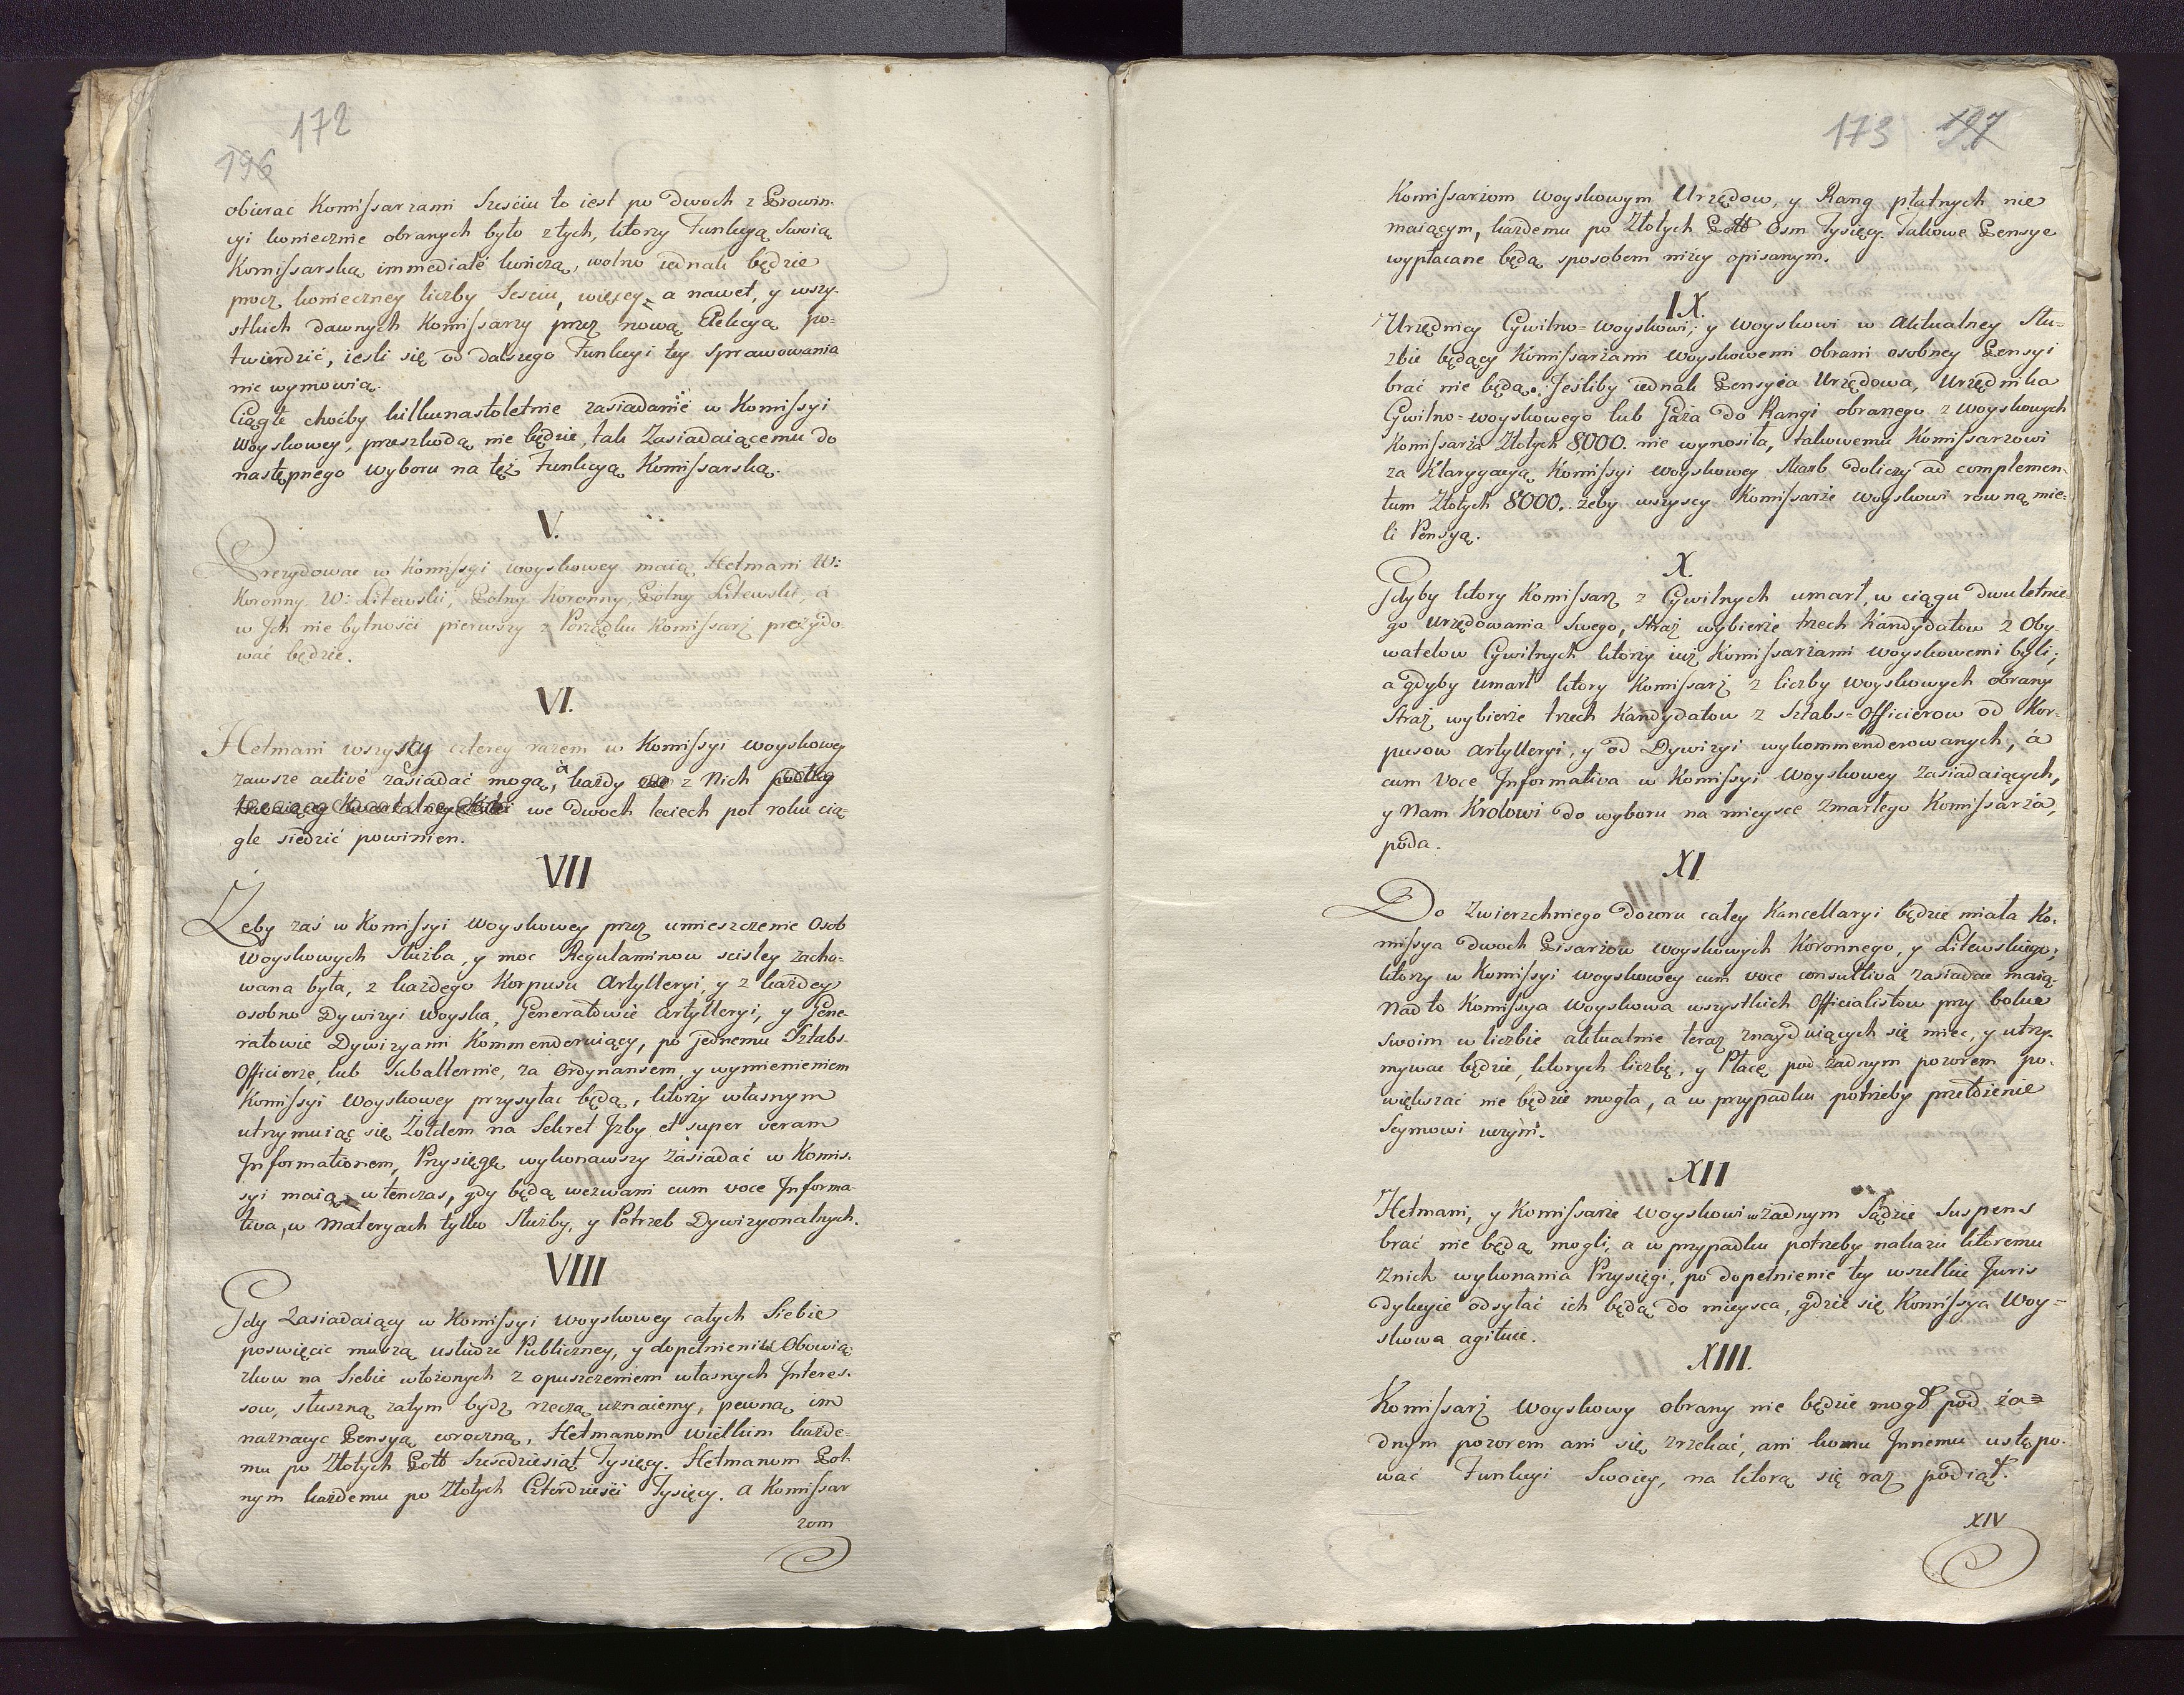 172
196
obierać Komissarzami Sześciu to iest po dwóch z Prowin-
cyi koniecznie obranych było z tych, którzy Funkcyą Swoią
Komissarską immediaté kończą, wolno iednak będzie
procz konieczney liczby Sesciu, więcey, a nawet, y wszy-
stkich dawnych Komissarzy przez nową Elekcyą po-
twierdzić, iesli się od dalszego Funkcyi tey Sprawowania
nie wymowią.
Ciągłe choćby kilkunastoletnie zasiadanie w Komissyi
Woyskowey, przeszkodą nie będzie, tak Zasiadaiącemu do
następnego wyboru na też Funkcyą Komissarską.
V.
Prezydować w Komissyi woyskowey maią Hetmani W:
Koronny, W: Litewski, Polny Koronny, Polny Litewski, á
w Ich nie bytności pierwszy z Porządku Komissarz prezydo-
wać będzie.
VI.
Hetmani wszyscy czterey razem w Komissyi woyskowey
zawsze activé zasiadać mogą, à każdy z Nich
we dwoch leciech poł roku cią-
gle siedzić powinien.
VII
Żeby zaś w Komissyi Woyskowey przez umieszczenie Osob
Woyskowych Służba, y moc Regulaminow scisley zacho-
wana była, z każdego Korpusu Artylleryi, y z każdey
osobno Dywizyi Woyska, Generałowie Artylleryi, y Gene-
rałowie Dywizyami Kommenderuiący, po jednemu Sztabs-
Officierze, lub Subalternie, za Ordynansem, y wymienieniem
Komissyi Woyskowey przysyłac będą, którzy własnym
utrzymuiąc się Żołdem na Sekret Izby et super veram
Informationem, Przysięgę wykonawszy zasiadać w Komis-
syi maią, wtenczas, gdy będą wezwani cum voce Informa-
tiva, w Materyach tylko Służby, y Potrzeb Dywizyonalnych.
VIII
Gdy Zasiadaiący w Komissyi Woyskowey całych Siebie
poswięcic muszą usłudze Publiczney, y dopełnieniu Obowią-
zkow na Siebie włożonych z opuszczeniem własnych Interes-
sow, słuszną zatym bydz rzeczą uznaiemy, pewną im
naznaczyc Pensyą coroczną, Hetmanom Wielkim każde-
mu po Złotych Poll Szescdziesiąt Tysięcy. Hetmanom Pol-
nym każdemu po Złotych Czterdzieści Tysięcy. a Komissar
zom
173 197
Komissarzom Woyskowym Urzędow, y Rang płatnych nie
maiącym, każdemu po Złotych Poll Osm Tysięcy. Takowe Pensye
wypłacane będą sposobem niżey opisanym.
IX.
Urzędnicy Cywilno-woyskowi, y Woyskowi w Aktualney Słu-
zbie będący Komissarzami Woyskowemi obrani osobney Pensyi
brać nie będą. Jeśliby iednak Pensya Urzędowa, Urzędnika
Cywilno-woyskowego lub Gaża do Rangi obranego z Woyskowych
Komissarza Złotych 8000. nie wynosiła, takowemu Komissarzowi
za Klarygacyą Komissyi Woyskowey Skarb doliczy ad complemen-
tum Złotych 8000. żeby wszyscy Komissarze Woyskowi rowną mie-
li Pensyą.
X.
Gdyby ktory Komissarz z Cywilnych umarł, w ciągu dwuletnie-
go urzędowania Swego, Straż wybierze trzech Kandydatow z Oby-
watelow Cywilnych ktorzy iuż Komissarzami woyskowemi byli;
a gdyby umarł ktory Komissarz z liczby Woyskowych obrany
Straż wybierze trzech Kandydatow z Sztabs-Officierow od Kor-
pusow Artylleryi, y od Dywizyi wykommenderowanych, á
cum Voce Informativa w Komissyi Woyskowey Zasiadaiących,
y Nam Krolowi do wyboru na mieysce zmarłego Komissarza,
poda.
XI
Do Zwierzchniego dozoru całey Kancellaryi będzie miała Ko-
missya dwoch Pisarzow Woyskowych Koronnego, y Litewskiego,
ktorzy w Komissyi Woyskowey cum voce consultiva zasiadac maią.
Nad to Komissya Woyskowa wszystkich Officialistow przy boku
swoim w liczbie aktualnie teraz znayduiących się miec, y utrzy-
mywac będzie, ktorych liczbę, y Płacę pod żadnym pozorem po-
większać nie będzie mogła, a w przypadku potrzeby przełożenie
Seymowi uczyni.
XII
Hetmani, y Komissarze Woyskowi w żadnym Sądzie Suspens
brać nie będą mogli, a w przypadku potrzeby nakazu ktoremu
z nich wykonania Przysięgi, po dopełnienie tey wszelkie Juris
dykcyie odsyłać ich będą do mieysca, gdzie się Komissya Woy-
skowa agituie.
XIII.
Komissarz Woyskowy obrany nie będzie mogł pod ża-
dnym pozorem ani się zrzekać, ani komu Innemu ustępo-
wać Funkcyi Swoiey, na ktorą się raz podiął.
XIV